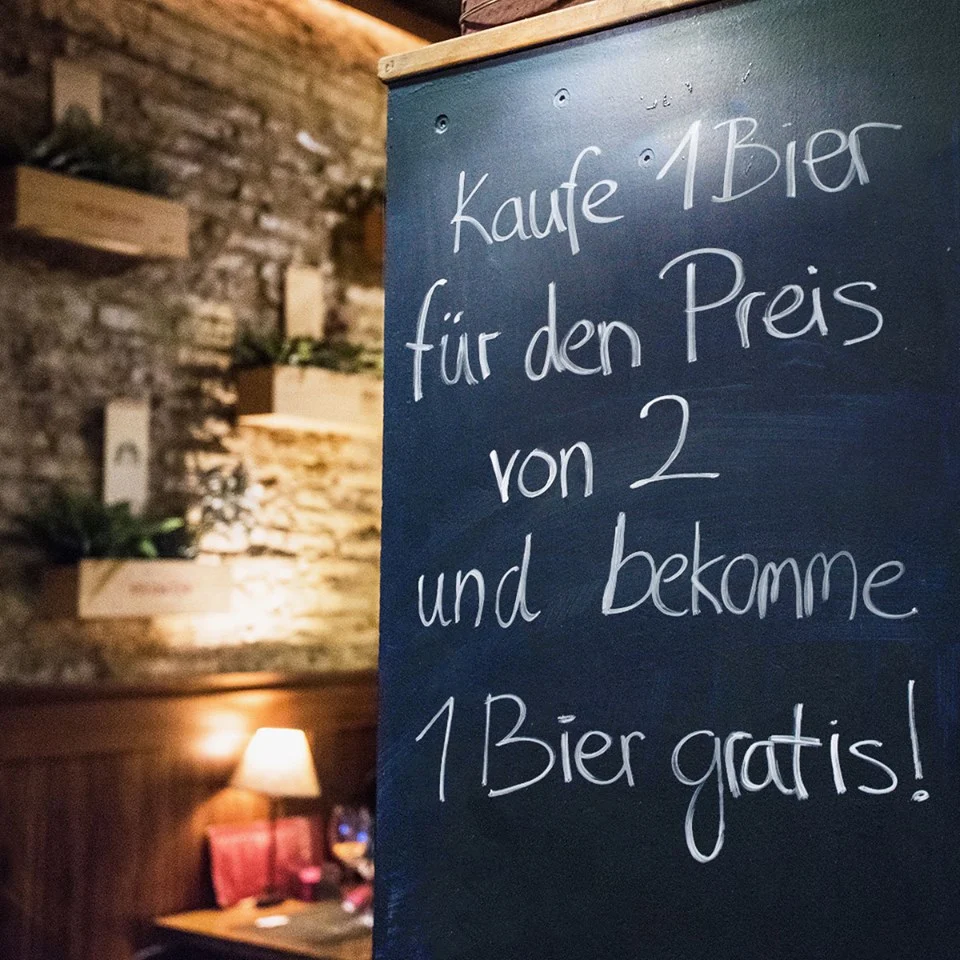 Kaufe 1 Bier
für den Preis
von 2
und bekomme
1 Bier gratis!